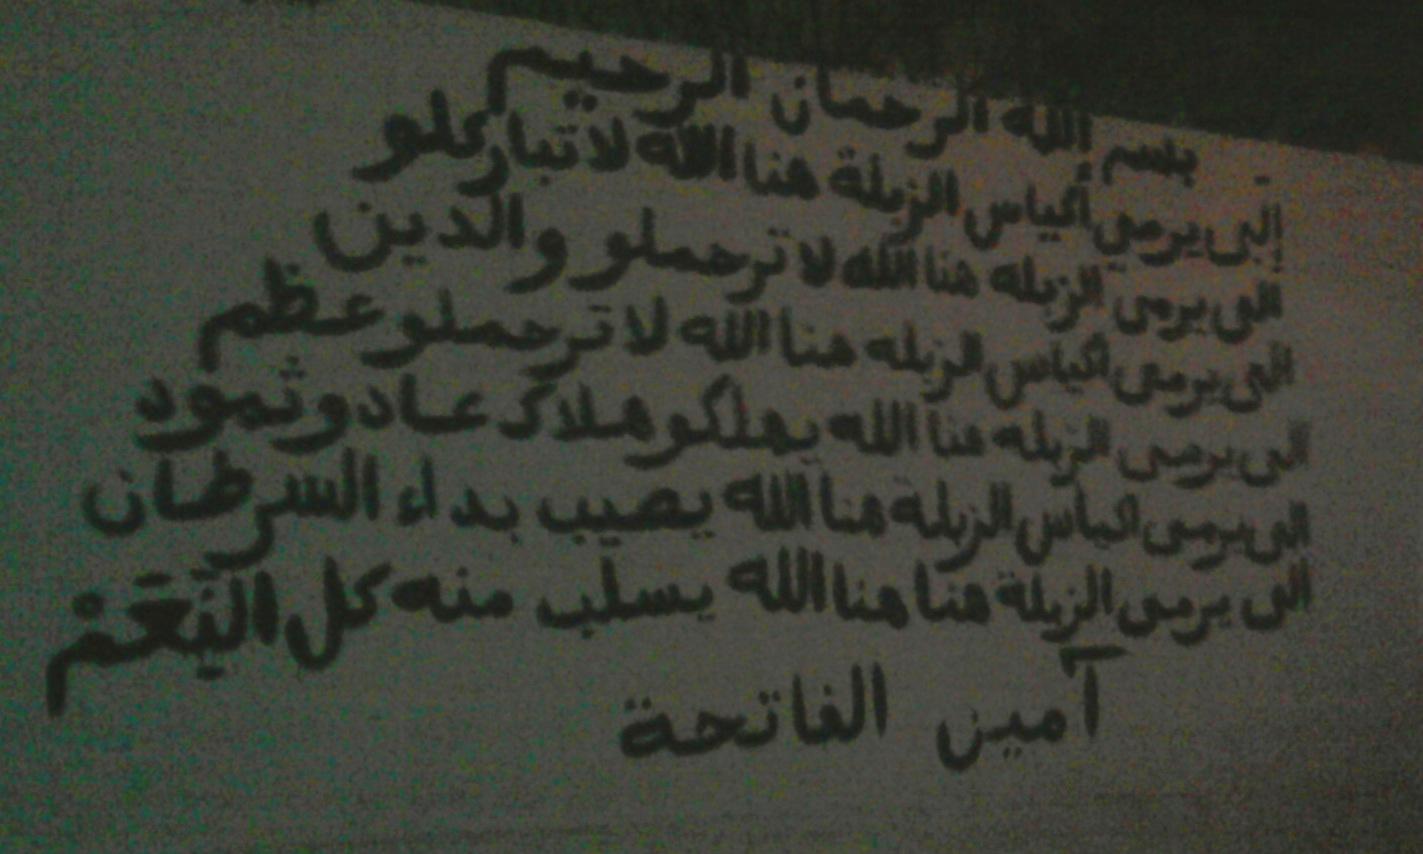 بسم الله الرحمان الرحيم
إلى يرمي أكياس الزبلة هنا الله لا تباركلو
الى يرمى الزبله هنا الله لا ترحملو والدين
الى يرمى اكياس الزبله هنا الله لا ترحملو عظم
الى يرمى الزبله هنا الله يهلكو هلاك عاد وثمود
الى يرمى اكياس الزبلة هنا الله يصيب بداء السرطان
الى يرمى الزبلة هنا هنا الله يسلب منه كل النِّعَمْ
آمين الفاتحة